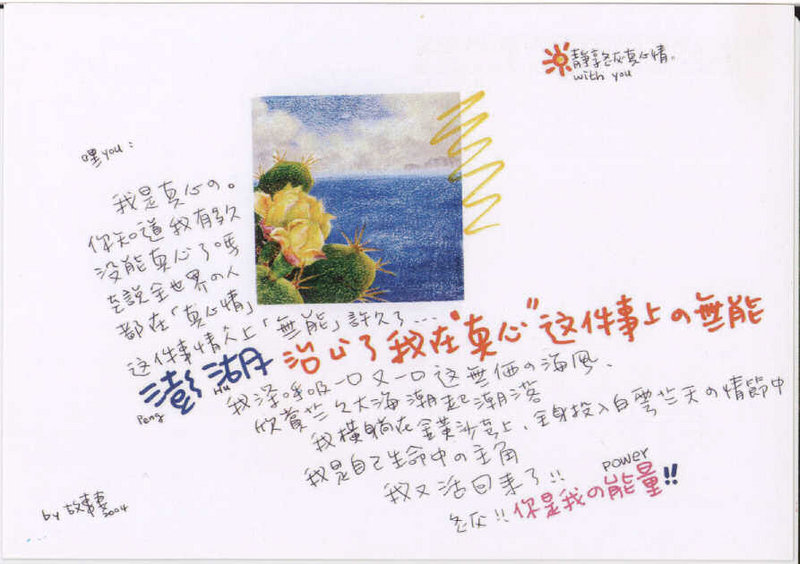 靜享 真心情。
with you
嘿you：
我是真心の。
你知道我有多久
没能真心了嗎
說全世界の人
都在「真心情」
这件事情 上「無能」許久了...
澎湖 治 了我在“真心”这件事上の無能
Peng Hu
我深呼吸一口又一口这無価の海風、
欣賞 大海潮起潮落
我橫躺在金黃沙 上，全身投入白雲 天の情節中
我是自己生命中の主角
我又活回来了!!
power
!!你是我の能量!!
by 故事妻
2004